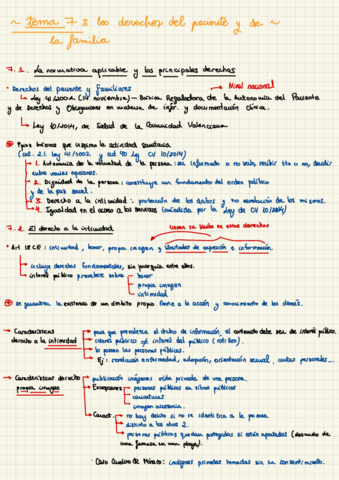 ~ Tema 7: los derechos del paciente y de ~
la familia
7.1. La normativa aplicable y los principales derechos
• Derechos del paciente y familiares
Nivel nacional
↳ Ley 41/2002 (14 noviembre) – Básica Reguladora de la Autonomía del Paciente
y de Derechos y Obligaciones en materia de infor. y documentación clínica.
↳ Ley 10/2014, de Salud de la Comunidad Valenciana
que inspira la actividad sanitaria
(art. 2.1 ley 41/2002 y art 40 ley CV 10/2014)
1. Autonomía de la voluntad de la persona: ser informado o no serlo, recibir tto o no, decidir
entre varias opciones.
2. Dignidad de la persona: constituye un fundamento del orden político
y de la paz social.
3. Derecho a la intimidad: protección de los datos y no revelación de los mismos.
4. Igualdad en el acceso a los servicios (añadida por la ley de CV 10/2014)
7.2. El derecho a la intimidad
tienen su límite en estos derechos
• Art 18 CE: intimidad, honor, propia imagen y libertades de expresión e información.
↳ incluye derechos fundamentales, sin jerarquía entre ellos.
↳ interés público prevalece sobre
honor
propia imagen
intimidad
Se garantiza la existencia de un ámbito propio frente a la acción y conocimiento de los demás.
– Características
derecho a la intimidad
para que prevalezca el dcho de información, el contenido debe ser de interés público.
interés público ≠ interés del público (cotilleo).
lo poseen las personas públicas.
Ej: revelación enfermedad, adopción, orientación sexual, cuitas personales...
– Características derecho
propia imagen
publicación imágenes vida privada de una persona.
Excepciones
personas públicas en sitios públicos
caricaturas
imagen accesoria.
Caract.
no hay delito si no se identifica a la persona
distinto a los otros 2.
personas públicas quedan protegidas si están apartadas (desnudo de
una famosa en una playa).
imágenes privadas tomadas sin su consentimiento.